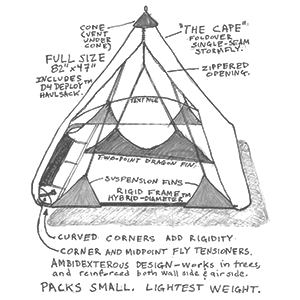 CONE
(VENT
UNDER
CONE)
"THE CAPE"
FOLDOVER
SINGLE-SEAM
STORMFLY.
FULL SIZE
82" x 47"
INCLUDES
D4 DEPLOY™
HAULSACK.
ZIPPERED
OPENING.
TENTACLE
TWO-POINT DRAGON FIN.
SUSPENSION FINS
RIGID FRAME™
HYBRID-DIAMETER
CURVED CORNERS ADD RIGIDITY
CORNER AND MIDPOINT FLY TENSIONERS.
AMBIDEXTEROUS DESIGN-works in trees,
and reinforced both wall side & airside.
PACKS SMALL. LIGHTEST WEIGHT.